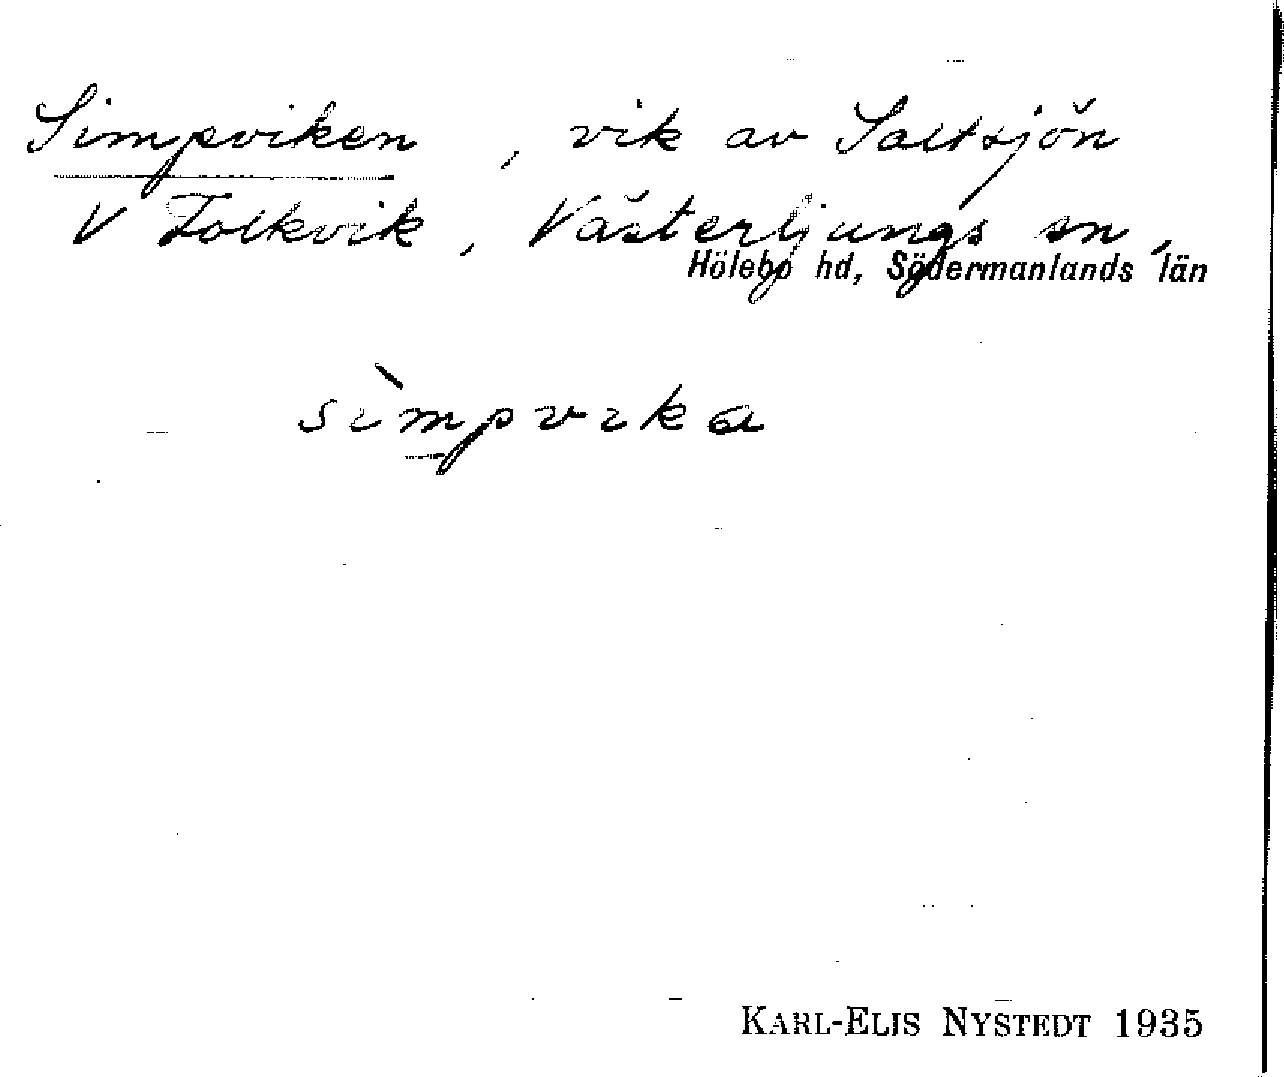 Simpviken, vik av Saltsjön
V Tolkvik, Västerljungs sn,
Hölebo hd, Södermanlands län
sìmpvika
KARL-ELIS NYSTEDT 1935